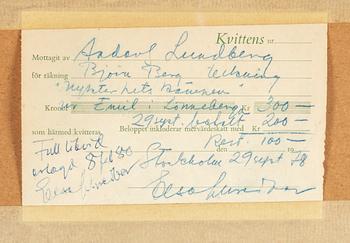 Kvittens nr
Mottagit av Lundberg
för räkning Björn Berg teckning
"
ur Emil i Lönneberg Kr 300—
29 sept betalt 200—
som härmed kvitteras Beloppet inkluderar mervärdeskatt med Kr
Rest. 100—
den 19
Full likvid
erlagd 8/ 80
Stockholm 29 sept 78
Elsa
Elsa